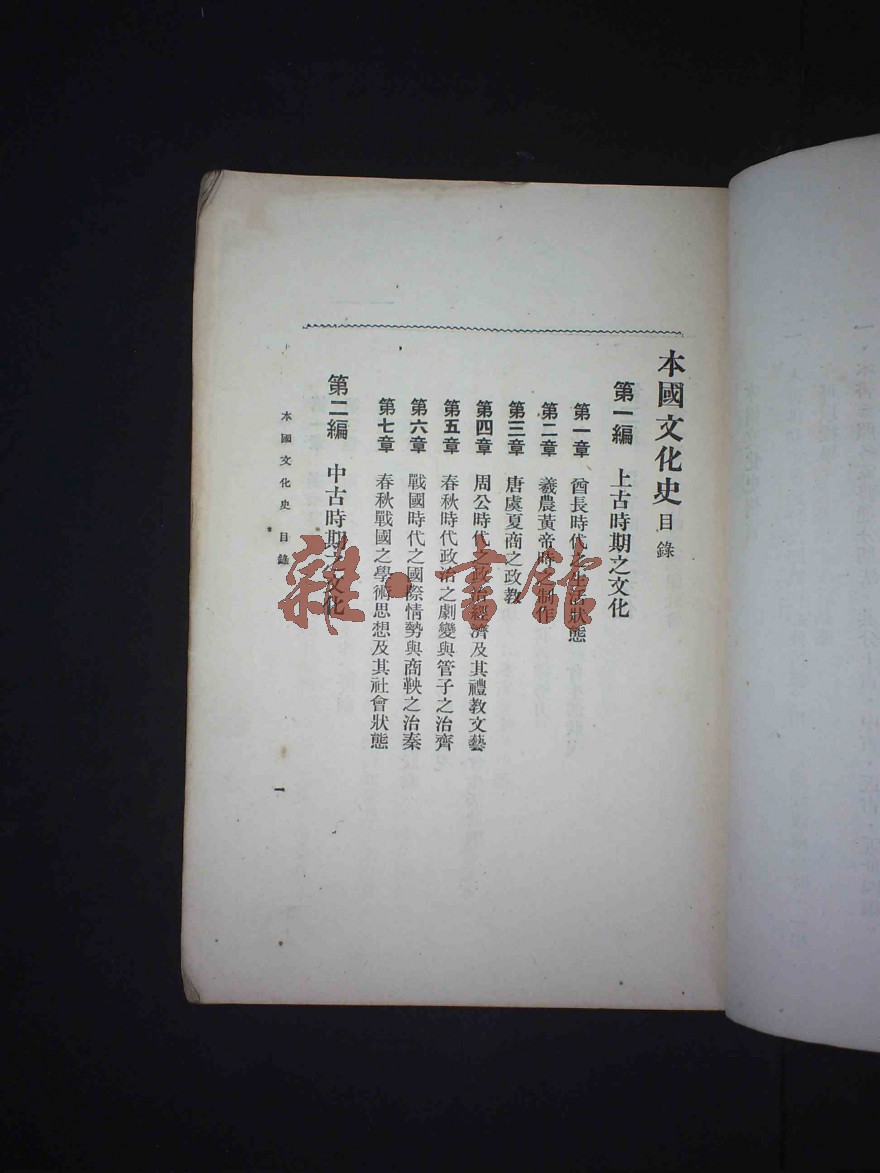 本國文化史 目錄
第一編 上古時期之文化
第一章 酋長時代之生活狀態
第二章 羲農黃帝時之制作
第三章 唐虞夏商之政教
第四章 周公時代之政治經濟及其禮教文藝
第五章 春秋時代政治之劇變與管子之治齊
第六章 戰國時代之國際情勢與商鞅之治秦
第七章 春秋戰國之學術思想及其社會狀態
第二編 中古時期之文化
本國文化史 目錄
一
雜·書館